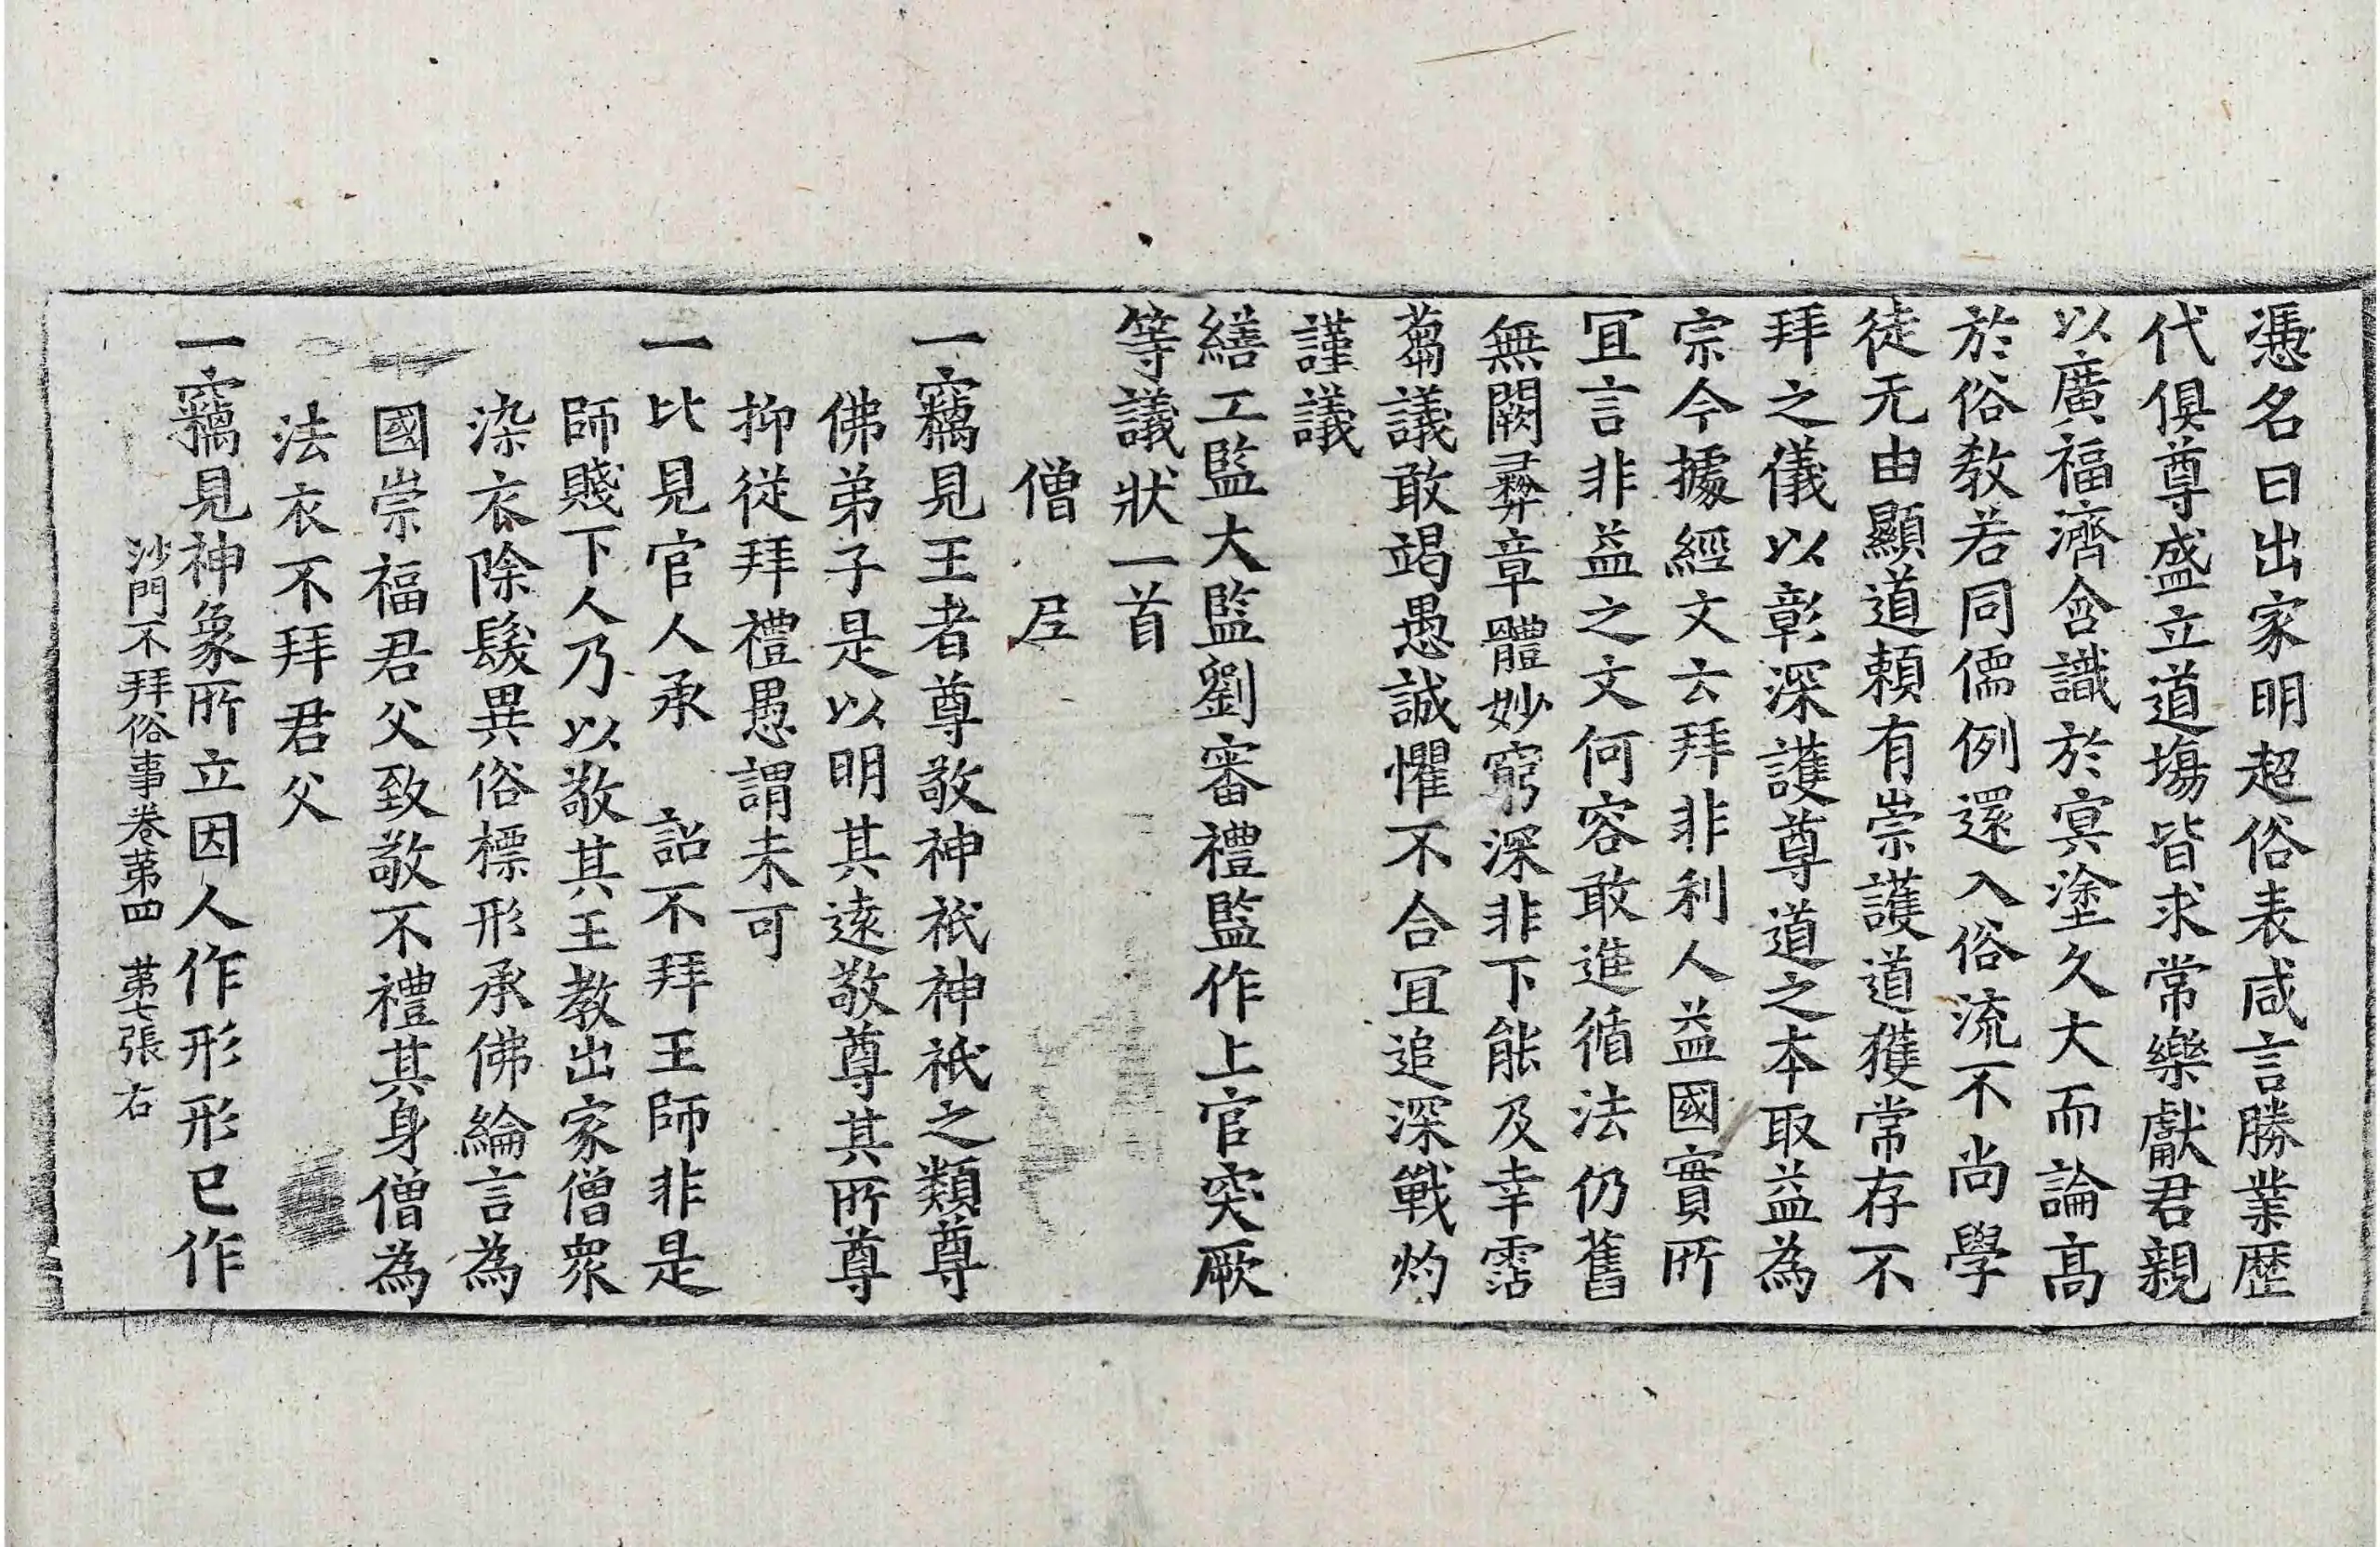 憑名曰出家明超俗表咸言勝業歷
代俱尊盛立道場皆求常樂獻君親
以廣福濟含識於冥塗久大而論高
於俗教若同儒例還入俗流不尚學
徒无由顯道賴有崇護道獲常存不
拜之儀以彰深護尊道之本取益為
宗今據經文云拜非利人益國實所
冝言非益之文何容敢進循法仍舊
無闕彞章體妙窮深非下能及幸霑
蒭議敢竭愚誠懼不合冝追深戰灼
謹議
繕工監大監劉審禮監作上官突厥
等議狀一首
僧 𡰱
一竊見王者尊敬神祇神祇之類尊
佛弟子是以明其遠敬尊其所尊
抑從拜禮愚謂未可
一比見官人承 詔不拜王師非是
師賤下人乃以敬其王教出家僧衆
染衣除髮異俗標形承佛綸言為
國崇福君父致敬不禮其身僧為
法衣不拜君父
一竊見神象所立因人作形形已作
沙門不拜俗事卷第四 第七張 右